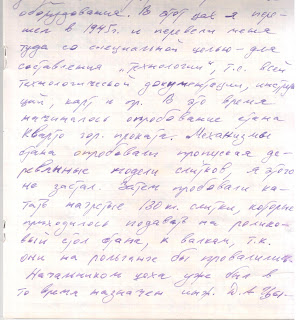 оборудования. В этот цех я пере-
шел в 1945г. и перевели меня
туда со специальной целью - для
составления „технологии", т.е. всей
технологической документации, инструк
ций, карт и пр. В это время
начиналось опробование стана
Кварто гор. проката. Механизмы
стана опробовали пропуская де-
ревянные модели слитков, я этого
не застал. Затем пробовали ка-
тать нагретые 130 кг. слитки, которые
приходилось подавать на ролико-
вый стол стана, к валкам, т.к.
они на рольганге бы провалились.
Начальником цеха уже был в
то время назначен инж. Д.А.